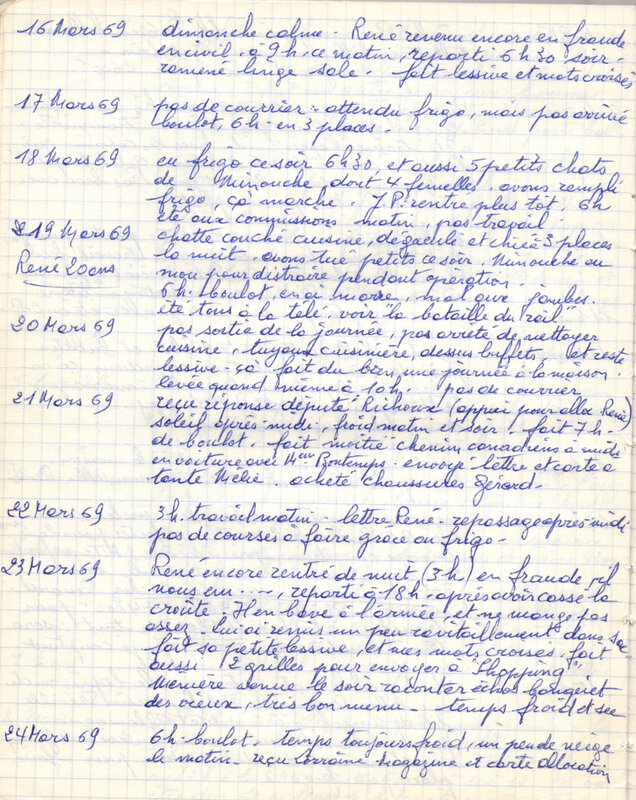 16 Mars 69 dimanche calme - René revenu encore en fraude
en civil. à 9h. ce matin, reparti 6h30 soir.
ramené linge sale - fait lessive et mots croisés
17 Mars 69 pas de courrier - attendu frigo, mais pas arrivé
boulot, 6h. en 3 places -
18 Mars 69 eu frigo ce soir 6h30, et aussi 5 petits chats
de Minouche, dont 4 femelles. avons rempli
frigo, çà marche. J.P. rentre plus tôt. 6h
été aux commissions matin, pas travail -
19 Mars 69 chatte couché cuisine, dégueulé et chié 3 places
René 20 ans la nuit - avons tué petits ce soir. Minouche eu
mou pour distraire pendant opération -
6h. boulot, en ai marre, mal aux jambes.
été tous à la télé. voir la bataille du rail"
20 Mars 69 pas sortie de la journée, pas arrêté de nettoyer
cuisine, tuyaux cuisinière, dessus buffets, et reste
lessive - çà fait du bien, une journée à la maison.
levée quand même à 10h. pas de courrier
21 Mars 69 reçu réponse député Richoux (appui pour alloc René)
soleil après-midi, froid matin et soir. fait 7h.
de boulot. fait moitié chemin canadiens à midi
en voiture avec Bontemps. envoyé lettre et carte à
tante Mélie. acheté chaussures Gérard -
22 Mars 69 3h. travail matin - lettre René - repassage après-midi
pas de courses à faire grâce au frigo -
23 Mars 69 René encore rentré de nuit (3h) en fraude,
nous em ...., reparti à 18h. après avoir cassé la
croûte. Il en bave à l'armée, et ne mange pas
assez. lui ai remis un peu ravitaillement dans sac
fait sa petite lessive, et mes mots croisés. fait
aussi 2 grilles pour envoyer à "Shopping".
venue le soir raconter échos banquet
des vieux, très bon menu - temps froid et sec
24 Mars 69 6h. boulot. temps toujours froid, un peu de neige
le matin - reçu Lorraine Magazine et carte